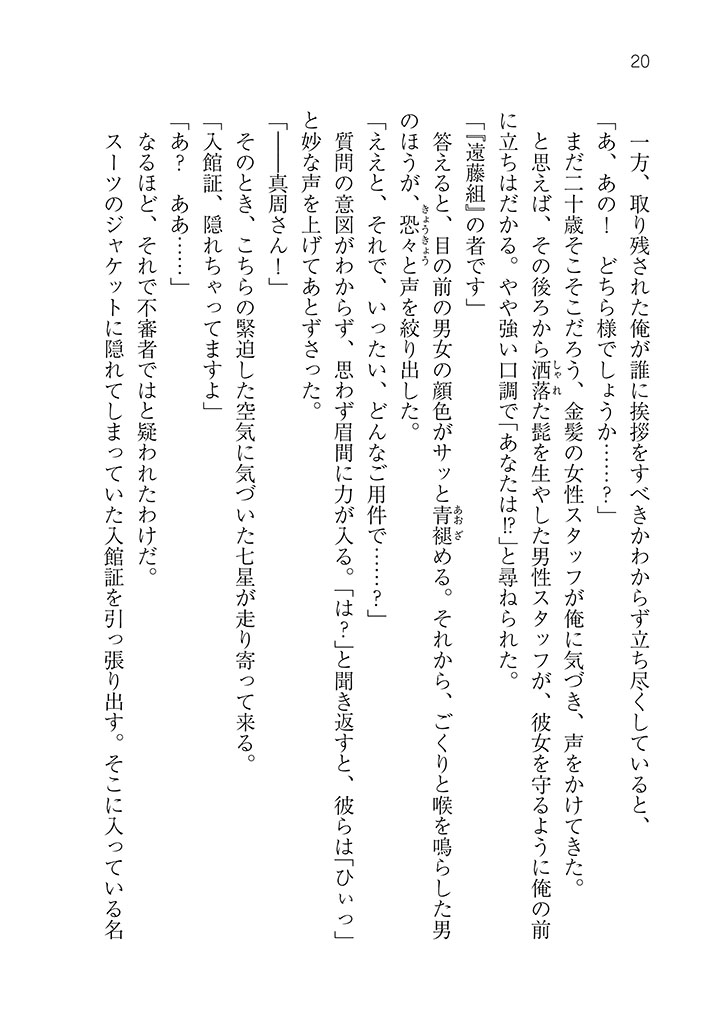 20
一方、取り残された俺が誰に挨拶をすべきかわからず立ち尽くしていると、
「あ、あの！　どちら様でしょうか……？」
まだ二十歳そこそこだろう、金髪の女性スタッフが俺に気づき、声をかけてきた。
と思えば、その後ろから洒落た髭を生やした男性スタッフが、彼女を守るように俺の前
しゃれ
に立ちはだかる。やや強い口調で「あなたは⁉」と尋ねられた。
「『遠藤組』の者です」
答えると、目の前の男女の顔色がサッと青褪める。それから、ごくりと喉を鳴らした男
あおざ
のほうが、恐々と声を絞り出した。
きょうきょう
「ええと、それで、いったい、どんなご用件で……？」
質問の意図がわからず、思わず眉間に力が入る。「は？」と聞き返すと、彼らは「ひぃっ」
と妙な声を上げてあとずさった。
「――真周さん！」
そのとき、こちらの緊迫した空気に気づいた七星が走り寄って来る。
「入館証、隠れちゃってますよ」
「あ？　ああ……」
なるほど、それで不審者ではと疑われたわけだ。
スーツのジャケットに隠れてしまっていた入館証を引っ張り出す。そこに入っている名